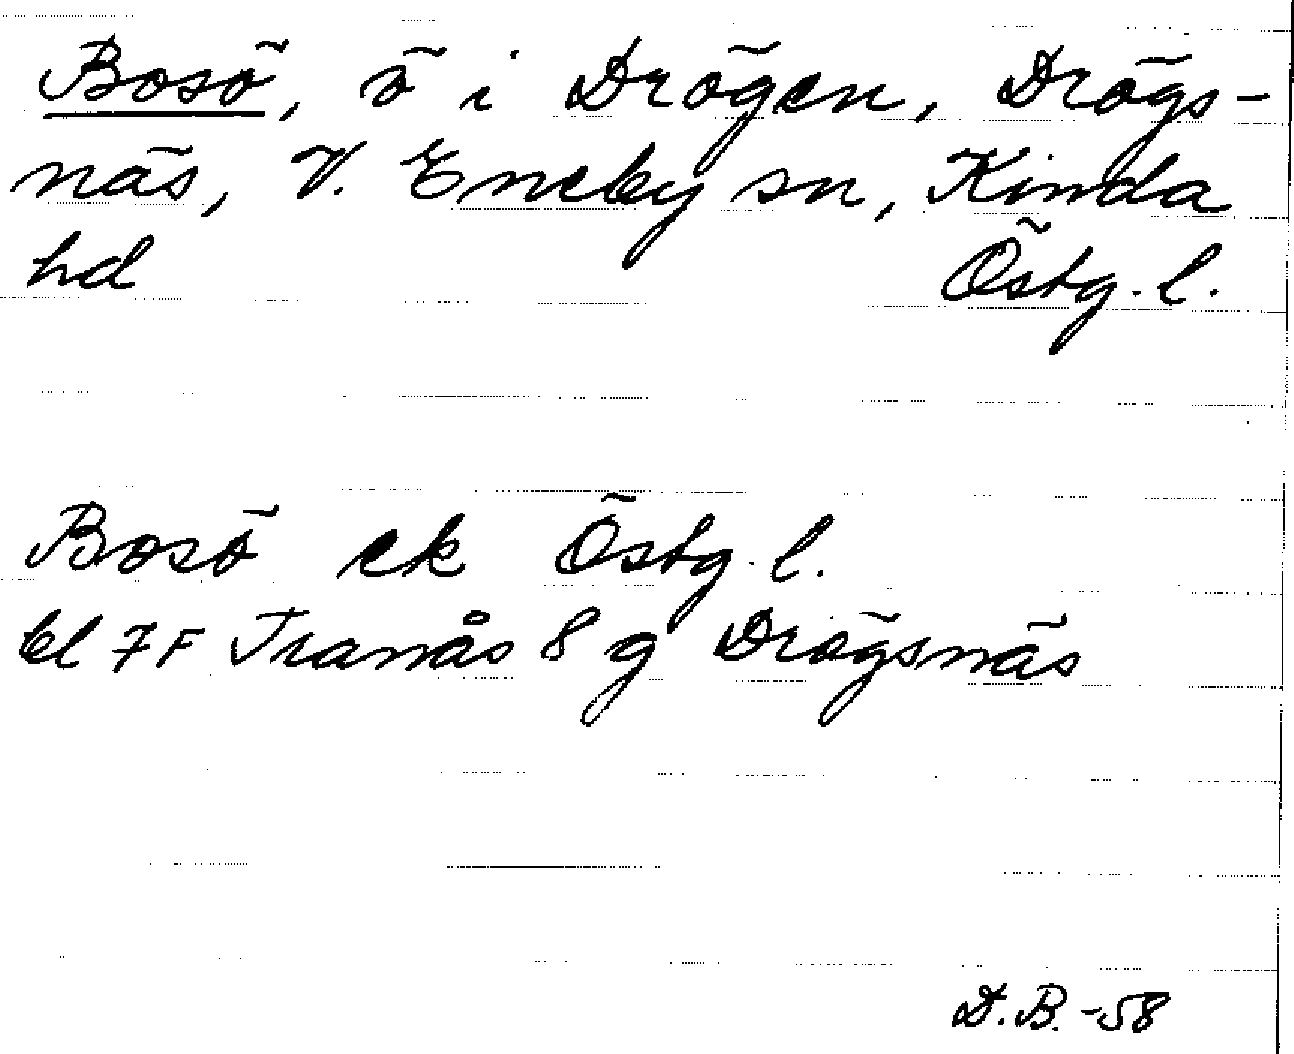 Bosö, ö i Drögen, Drögs-
näs, V. Eneby sn, Kinda
hd Östg. l.
Bosö ek Östg. l.
bl 7F Tranås 8 g Drögsnäs
D.B.-58